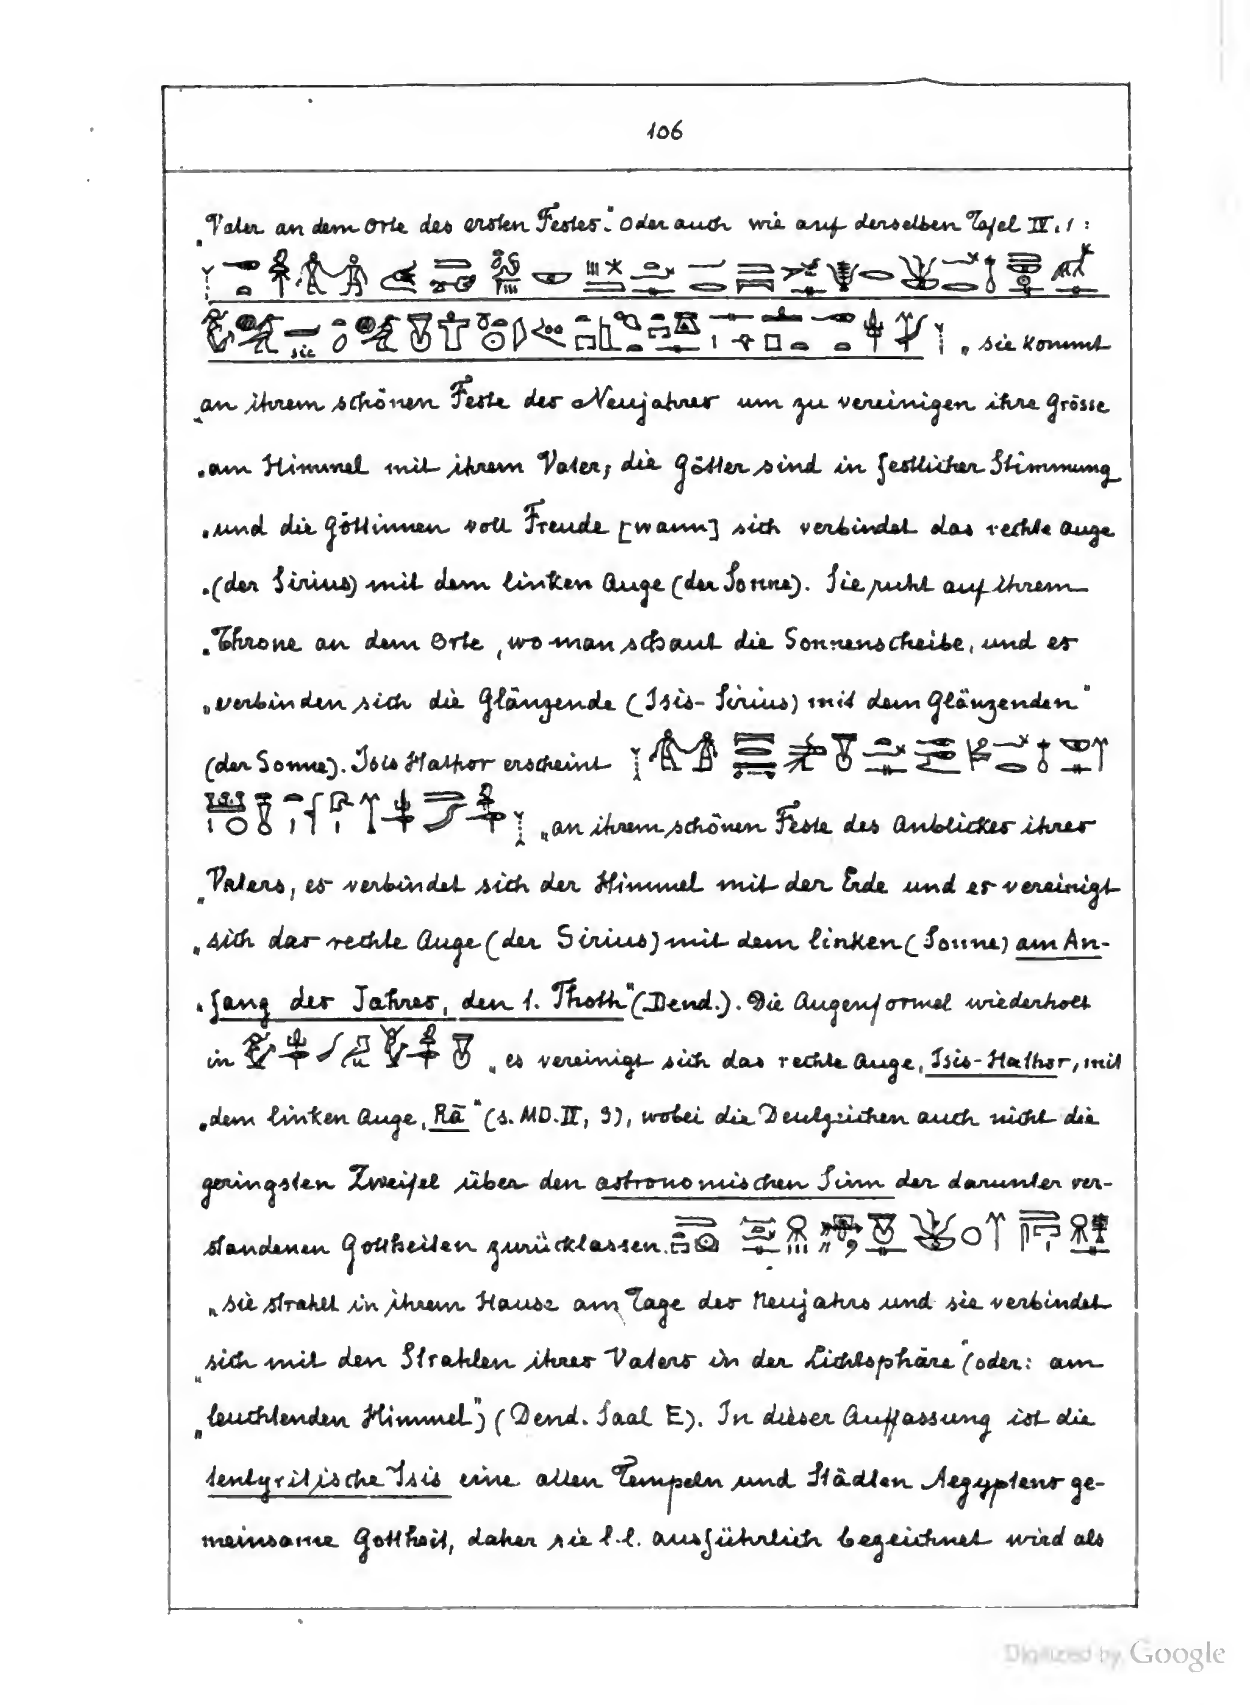 106
„Vater an dem Orte des ersten Festes". Oder auch wie auf derselben Tafel IV, 1 :
sic
„sie kommt
„an ihrem schönen Feste des Neujahres um zu vereinigen ihre Grösse
„am Himmel mit ihrem Vater; die Götter sind in festlicher Stimmung
„und die Göttinnen voll Freude [wann] sich verbindet das rechte Auge
„(der Sirius) mit dem linken Auge (der Sonne). Sie ruht auf ihrem
„Throne an dem Orte, wo man schaut die Sonnenscheibe, und es
„verbinden sich die Glänzende (Isis-Sirius) mit dem Glänzenden"
(der Sonne). Isis Hathor erscheint
„an ihrem schönen Feste des Anblickes ihres
„Vaters, es verbindet sich der Himmel mit der Erde und es vereinigt
„sich das rechte Auge (der Sirius) mit dem linken (Sonne) am An-
„fang des Jahres, den 1. Thoth" (Dend.). Die Augenformel wiederholt
in „es vereinigt sich das rechte Auge, Isis-Hathor, mit
„dem linken Auge, Rā" (s. MD. II, 9), wobei die Deutzeichen auch nicht die
geringsten Zweifel über den astronomischen Sinn der darunter ver-
standenen Gottheiten zurücklassen.
„sie strahlt in ihrem Hause am Tage des Neujahrs und sie verbindet
„sich mit den Strahlen ihres Vaters in der Lichtsphäre" (oder: am
„leuchtenden Himmel") (Dend. Saal E). In dieser Auffassung ist die
tentyritische Isis eine allen Tempeln und Städten Aegyptens ge-
meinsame Gottheit, daher sie l.l. ausführlich bezeichnet wird als
Digitized by Google